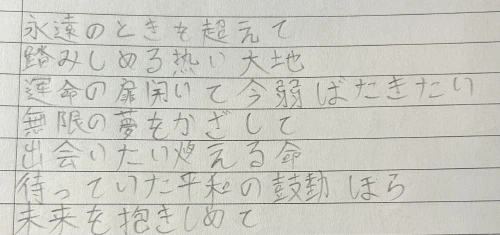 永遠のときを超えて
踏みしめる熱い大地
運命の扉開いて今弱ばたきたい
無限の夢をかざして
出会いたい燃える命
待っていた平和の鼓動ほら
未来を抱きしめて